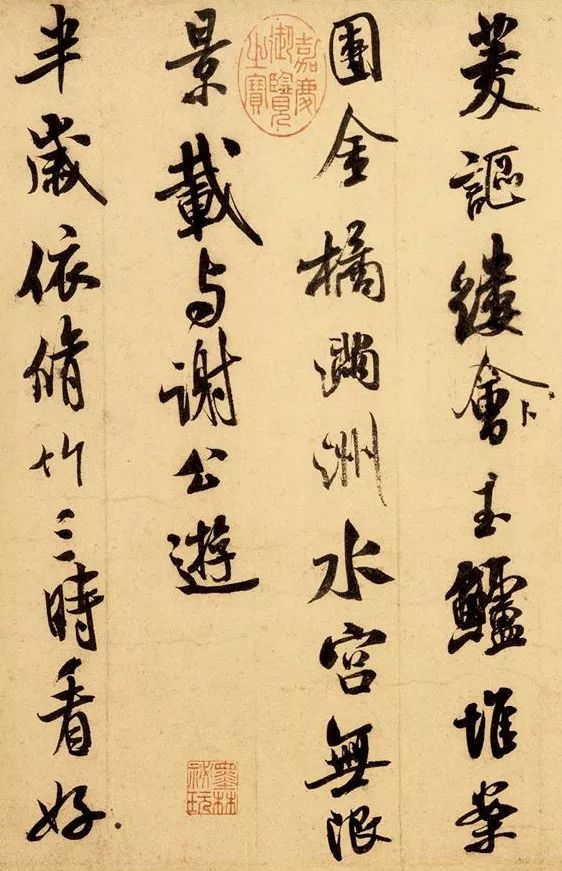 菱謳縷會玉鱸堆案
團金橘滿洲水宮無限
景載与謝公遊
半歲依脩竹三時看好
嘉慶御覽之寶
墨林祕玩